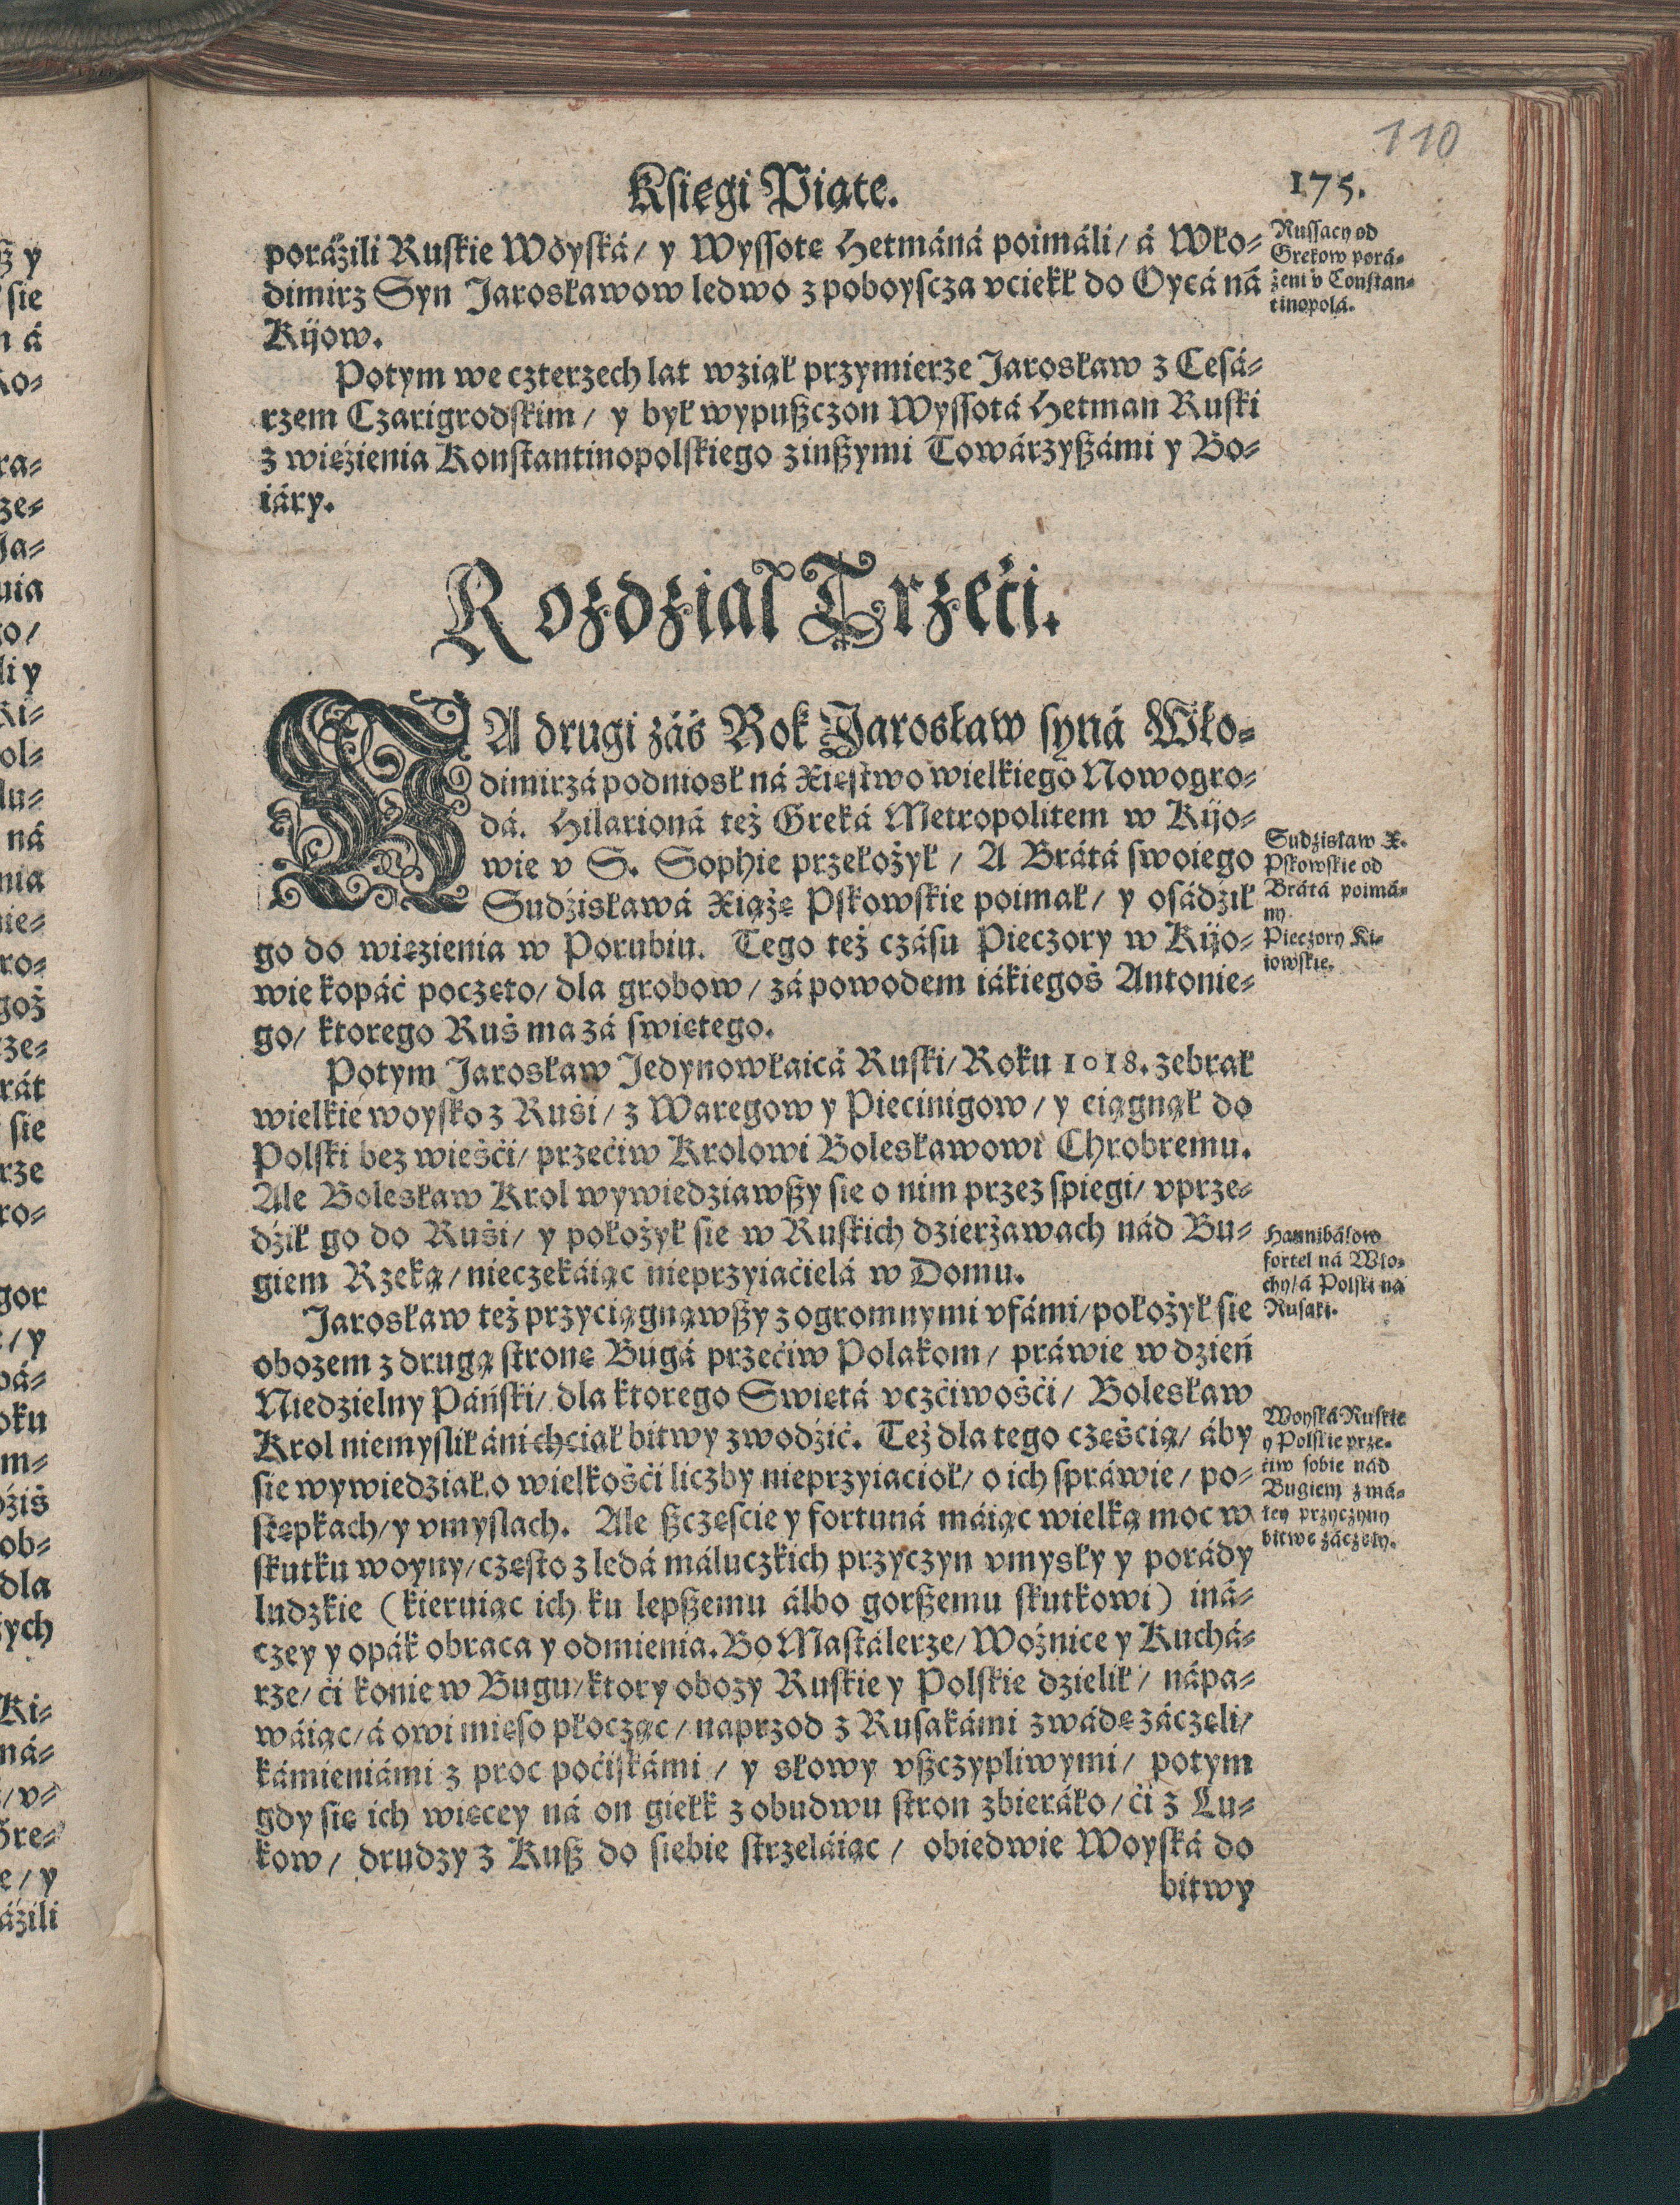 110
Księgi Piąte.
175.
poráźili Ruskie Woyská/ y Wyssotę Hetmáná poimáli/ á Wło-
dimirz Syn Jarosławow ledwo z poboyscza vciekł do Oycá ná
Kijow.
Russacy od
Grekow porá-
żeni v Constan-
tinopolá.
Potym we czterzech lat wziął przymierze Jarosław z Cesá-
rzem Czarigrodskim/ y był wypuszczon Wyssotá Hetman Ruski
z więźienia Konstantinopolskiego z inszymi Towárzyszámi y Bo-
iáry.
Rozdział Trzeći.
NA drugi záś Rok Jarosław syná Wło-
dimirzá podniosł ná Xięstwo wielkiego Nowogro-
dá. Hilarioná też Greká Metropolitem w Kijo-
wie v S. Sophie przełożył/ A Brátá swoiego
Sudźisławá Xiążę Pskowskie poimał/ y osádźił
go do więzienia w Porubiu. Tego też czásu Pieczory w Kijo-
wie kopáć poczęto/ dla grobow/ zá powodem iákiegoś Antonie-
go/ ktorego Ruś ma zá swiętego.
Sudzisław X.
Pskowskie od
Brátá poimá-
ny.
Pieczory Ki-
iowskie.
Potym Jarosław Jedynowłaicá Ruski/ Roku 1018. zebrał
wielkie woysko z Ruśi/ z Waregow y Piecinigow/ y ciągnął do
Polski bez wieśći/ przećiw Krolowi Bolesławowi Chrobremu.
Ale Bolesław Krol wywiedziawszy sie o nim przez spiegi/ vprze-
dźił go do Ruśi/ y położył sie w Ruskich dzierżawach nád Bu-
giem Rzeką/ nieczekáiąc nieprzyiaćielá w Domu.
Hannibálow
fortel ná Wło-
chy/ á Polski ná
Rusaki.
Jarosław też przyciągnąwszy z ogromnymi vfámi/ położył sie
obozem z drugą stronę Bugá przećiw Polakom/ práwie w dzień
Niedzielny Páński/ dla ktorego Swiętá vczćiwośći/ Bolesław
Krol niemyslił áni chciał bitwy zwodźić. Też dla tego częścią/ áby
sie wywiedział o wielkośći liczby nieprzyiacioł/ o ich spráwie/ po-
stępkach/ y vmysłach. Ale szczescie y fortuná máiąc wielką moc w
skutku woyny/ często z ledá máluczkich przyczyn vmysły y porády
ludzkie (kieruiąc ich ku lepszemu álbo gorszemu skutkowi) iná-
czey y opák obraca y odmienia. Bo Mastálerze/ Woźnice y Kuchá-
rze/ ći konie w Bugu/ ktory obozy Ruskie y Polskie dzielił/ nápa-
wáiąc/ á owi mięso płocząc/ naprzod z Rusakámi zwádę záczęli/
kámieniámi z proc poćiskámi/ y słowy vszczypliwymi/ potym
gdy się ich więcey ná on giełk z obudwu stron zbieráło/ ći z Lu-
kow/ drudzy z Kusz do siebie strzeláiąc/ obiedwie Woyská do
bitwy
Woyská Ruskie
y Polskie prze-
ćiw sobie nád
Bugiem z má-
łey przyczyny
bitwę záczęły.
ß y
sie
á
ra-
ze-
Ja-
li y
ol-
ná
nie-
ro-
rát
sie
rze
ro-
gor
/ y
oku
m-
ob-
dla
Ki-
ná-
/ v-
e/ y
áźili